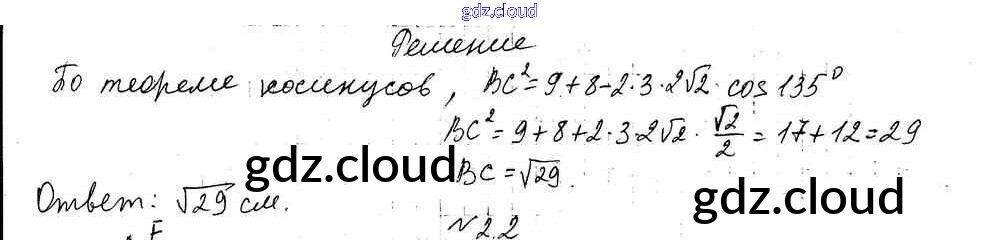 gdz.cloud
Решение
По теореме косинусов, BC²=9+8-2·3·2√2·cos 135⁰
BC²=9+8+2·3·2√2·√2/2=17+12=29
gdz.cloud
BC=√29.
gdz.cloud
Ответ: √29 см.
N2.2
F